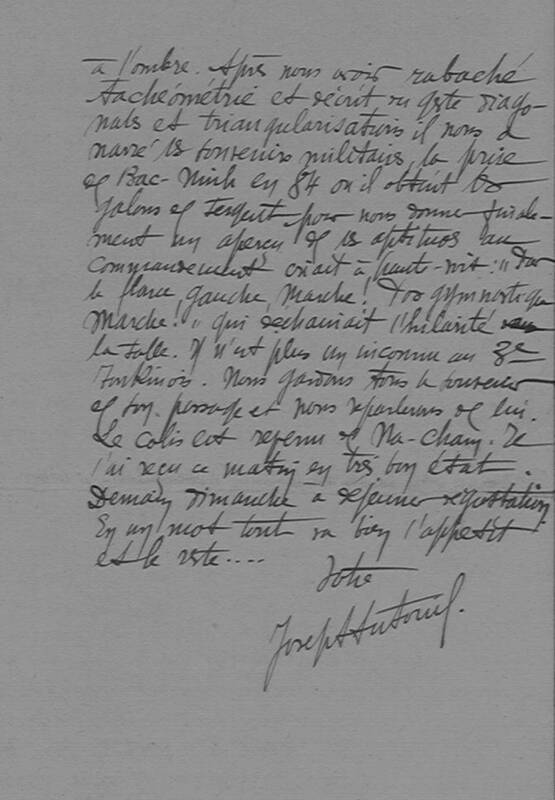 à l'ombre. Après nous avoir rabaché
tachéométrie et décrit du geste diago-
nales et triangularisations il nous a
narré ses souvenirs militaires, la prise
de Bac-Ninh en 84 où il obtint les
galons de sergent pour nous donner finale-
ment un aperçu de ses aptitudes au
commandement criait à haute-voix : "Par
le flanc gauche, Marche ! Pas gymnastique
Marche ! " qui déchainait l'hilarité
la salle. Il n'est plus un inconnu au 3e
Tonkinois. Nous gardons tous le souvenir
de son passage et nous reparlerons de lui.
Le colis est revenu de Na-Cham. Je
l'ai reçu ce matin en très bon état.
Demain dimanche à déjeuner dégustation
En un mot tout va bien l'appétit
et le reste....
Votre
Joseph